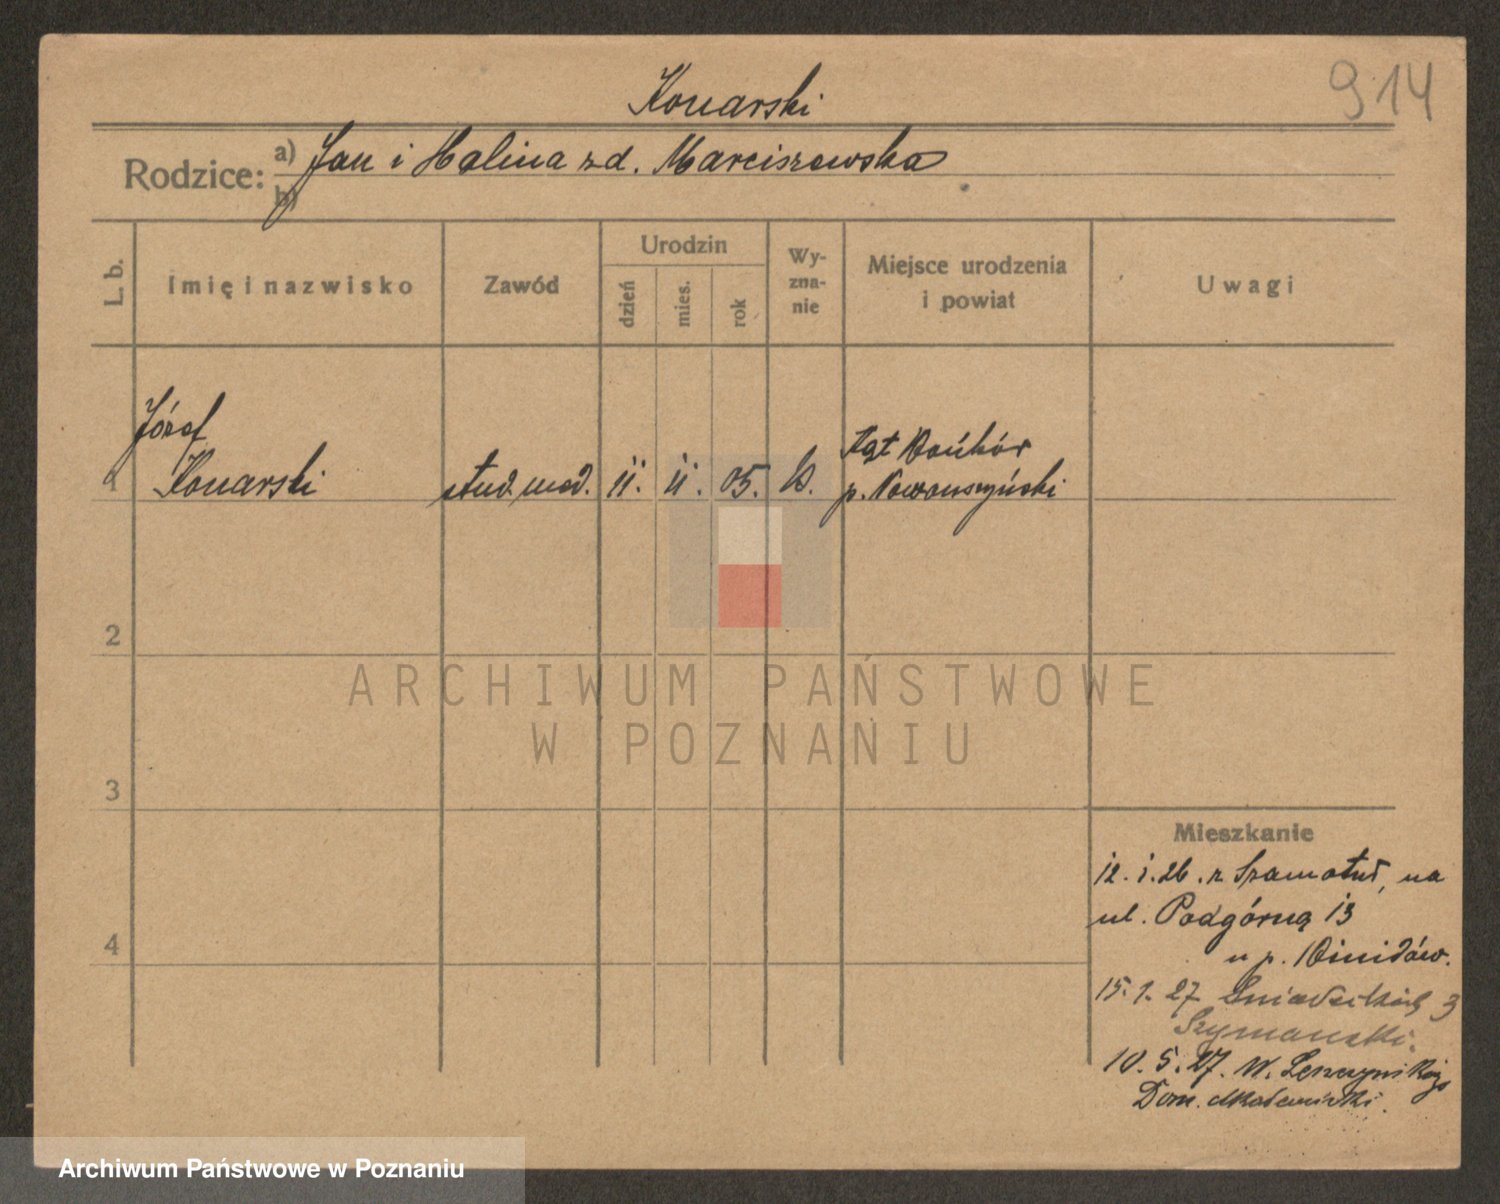 Konarski
914
Rodzice: a) Jan i Halina z d. Marciszewska
b)
L. b. Imię i nazwisko Zawód Urodzin dzień mies. rok Wyznanie Miejsce urodzenia i powiat Uwagi
Józef
1 Konarski stud. med. 11. 11. 05. k.
2
3
4
Mieszkanie
12. 1. 26. z Szamotuł, na
ul. Podgórną 13
u p.
15. 1. 27 Śniadeckich 3
Szymanski.
10. 5. 27. W. Leszczyńskiego
Dom. Akademicki.
ARCHIWUM PAŃSTWOWE
W POZNANIU
Archiwum Państwowe w Poznaniu